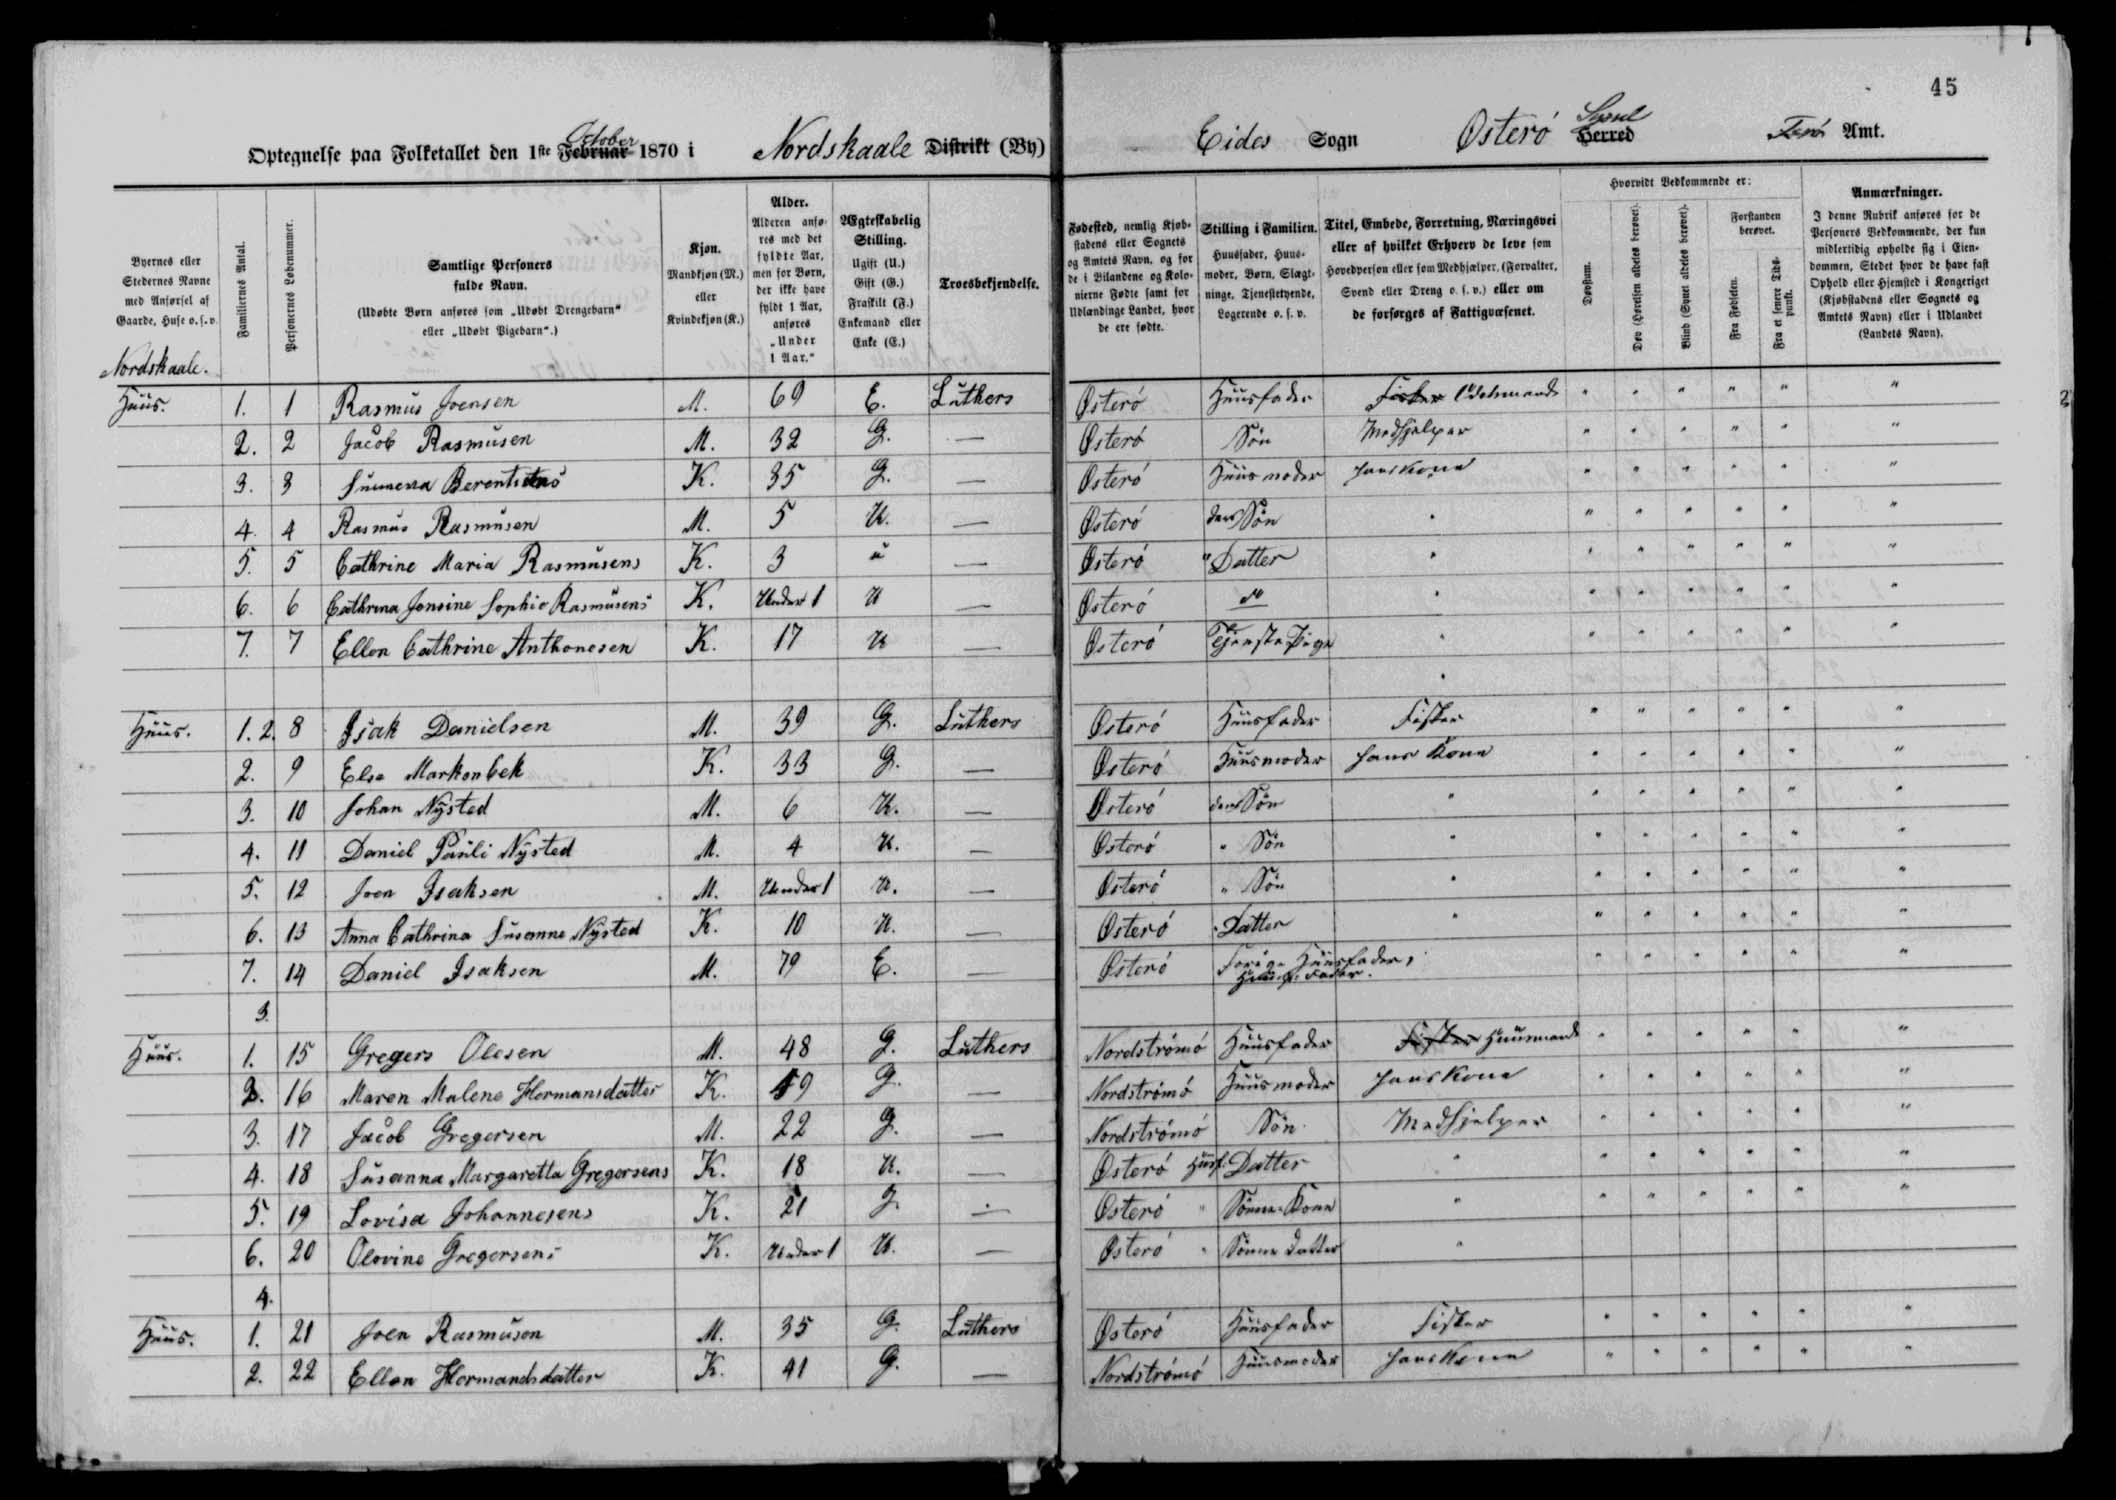 45
Optegnelse paa Folketallet den 1ste Februar October 1870 i Nordskaale Distrikt (By) Eides Sogn Österö Herred Syssel Færö Amt.
Byernes eller Stedernes Navne med Anførsel af Gaarde, Huse o. s. v.
Familiernes Antal.
Personernes Løbenummer.
Samtlige Personers fulde Navn.
(Udøbte Børn anføres som „Udøbt Drengebarn" eller „Udøbt Pigebarn".)
Kjøn. Mandkjøn (M.) eller Kvindekjøn (K.)
Alder. Alderen anføres med det fyldte Aar, men for Børn, der ikke have fyldt 1 Aar, anføres „Under 1 Aar."
Ægteskabelig Stilling. Ugift (U.) Gift (G.) Fraskilt (F.) Enkemand eller Enke (E.)
Troesbekjendelse.
Fødested, nemlig Kjøbstadens eller Sognets og Amtets Navn, og for de i Bilandene og Kolonierne Fødte samt for Udlændinge Landet, hvor de ere fødte.
Stilling i Familien. Huusfader, Huusmoder, Børn, Slægtninge, Tjenestetyende, Logerende o. s. v.
Titel, Embede, Forretning, Næringsvei eller af hvilket Erhverv de leve som Hovedperson eller som Medhjælper, (Forvalter, Svend eller Dreng o. s. v.) eller om de forsørges af Fattigvæsenet.
Hvorvidt Vedkommende er:
Døvstum.
Døv (Hørelsen aldeles berøvet).
Blind (Synet aldeles berøvet).
Forstanden berøvet.
Fra Fødselen.
Fra et senere Tidspunkt.
Anmærkninger.
I denne Rubrik anføres for de Personers Vedkommende, der kun midlertidig opholde sig i Eiendommen, Stedet hvor de have fast Ophold eller Hjemsted i Kongeriget (Kjøbstadens eller Sognets og Amtets Navn) eller i Udlandet (Landets Navn).
Nordskaale.
Huus. 1. 1 Rasmus Joensen M. 69 E. Luthers Österö Huusfader Fisker " " " " " "
2. 2 Jacob Rasmusen M. 32 G. — Österö Søn Medhjelper " " " " " "
3. 3 Berentsens K. 35 G. — Österö Huusmoder hans Kone " " " " " "
4. 4 Rasmus Rasmusen M. 5 U. — Österö deres Søn " " " " " " "
5. 5 Cathrine Maria Rasmusens K. 3 u — Österö " Datter " " " " " " "
6. 6 Cathrina Jensine Sophie Rasmusens K. Under 1 U — Österö do " " " " " " "
7. 7 Ellen Cathrine Anthonesen K. 17 U — Österö Tjeneste Pige " " " " " " "
Huus. 1. 2. 8 Isak Danielsen M. 39 G. Luthers Österö Huusfader Fisker " " " " " "
2. 9 Else Markonbek K. 33 G. — Österö Huusmoder hans Kone " " " " " "
3. 10 Johan Nysted M. 6 U. — Österö deres Søn " " " " " " "
4. 11 Daniel Pauli Nysted M. 4 U. — Österö " Søn " " " " " " "
5. 12 Joen Isaksen M. Under 1 U. — Österö " Søn " " " " " " "
6. 13 Anna Cathrina Susanne Nysted K. 10 U. — Österö " Datter " " " " " " "
7. 14 Daniel Isaksen M. 79 E. — Österö Forige Huusfader, Huusf. Fader. " " " " " "
3.
Huus. 1. 15 Gregers Olesen M. 48 G. Luthers Nordströmö Huusfader Fisker Huusmand " " " " " "
2. 16 Maren Malene Hermansdatter K. 49 G. — Nordströmö Huusmoder hans Kone " " " " " "
3. 17 Jacob Gregersen M. 22 G. — Nordströmö Søn Medhjelper " " " " " "
4. 18 Susanna Margaretta Gregersens K. 18 U. — Österö Huusf. Datter " " " " " " "
5. 19 Lovisa Johannesens K. 21 G. — Österö " Sønne-Kone " " " " " " "
6. 20 Olevine Gregersens K. Under 1 U. — Österö " Sønne Datter "
4.
Huus. 1. 21 Joen Rasmusen M. 35 G. Luthers Österö Huusfader Fisker " " " " " "
2. 22 Ellen Hermandsdatter K. 41 G. — Nordströmö Huusmoder hans Kone " " " " " "